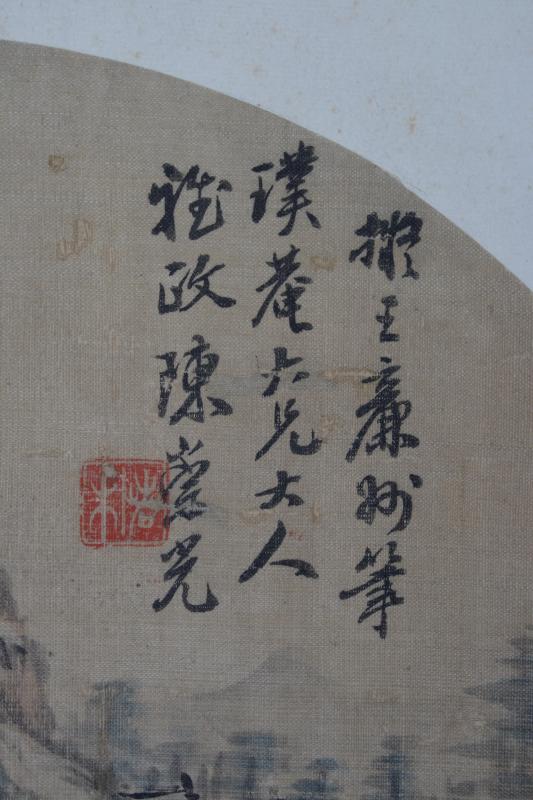 擬王廉州筆
璞菴六兄大人
雅政陳崇光
若木